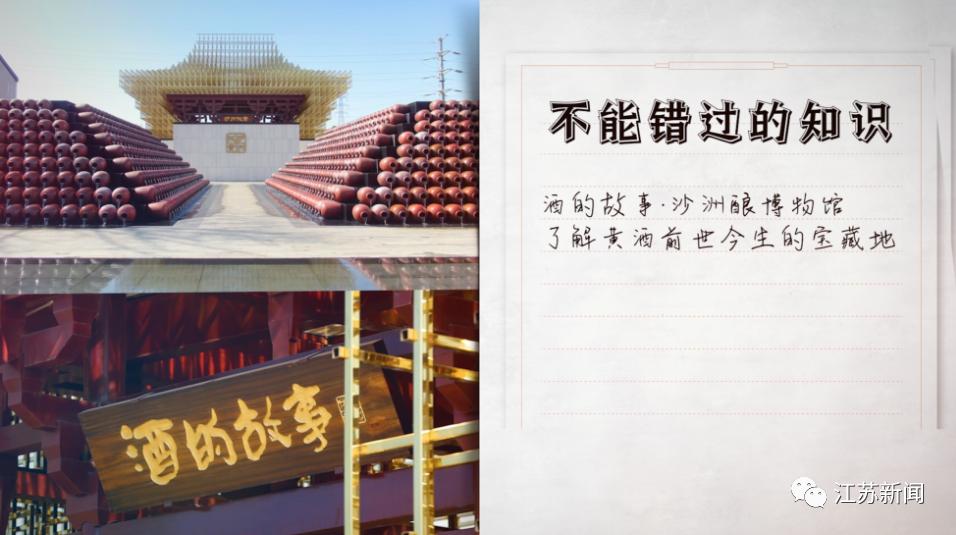 酒的故事
不能错过的知识
酒的故事·沙洲酿博物馆
了解黄酒前世今生的宝藏地
江苏新闻